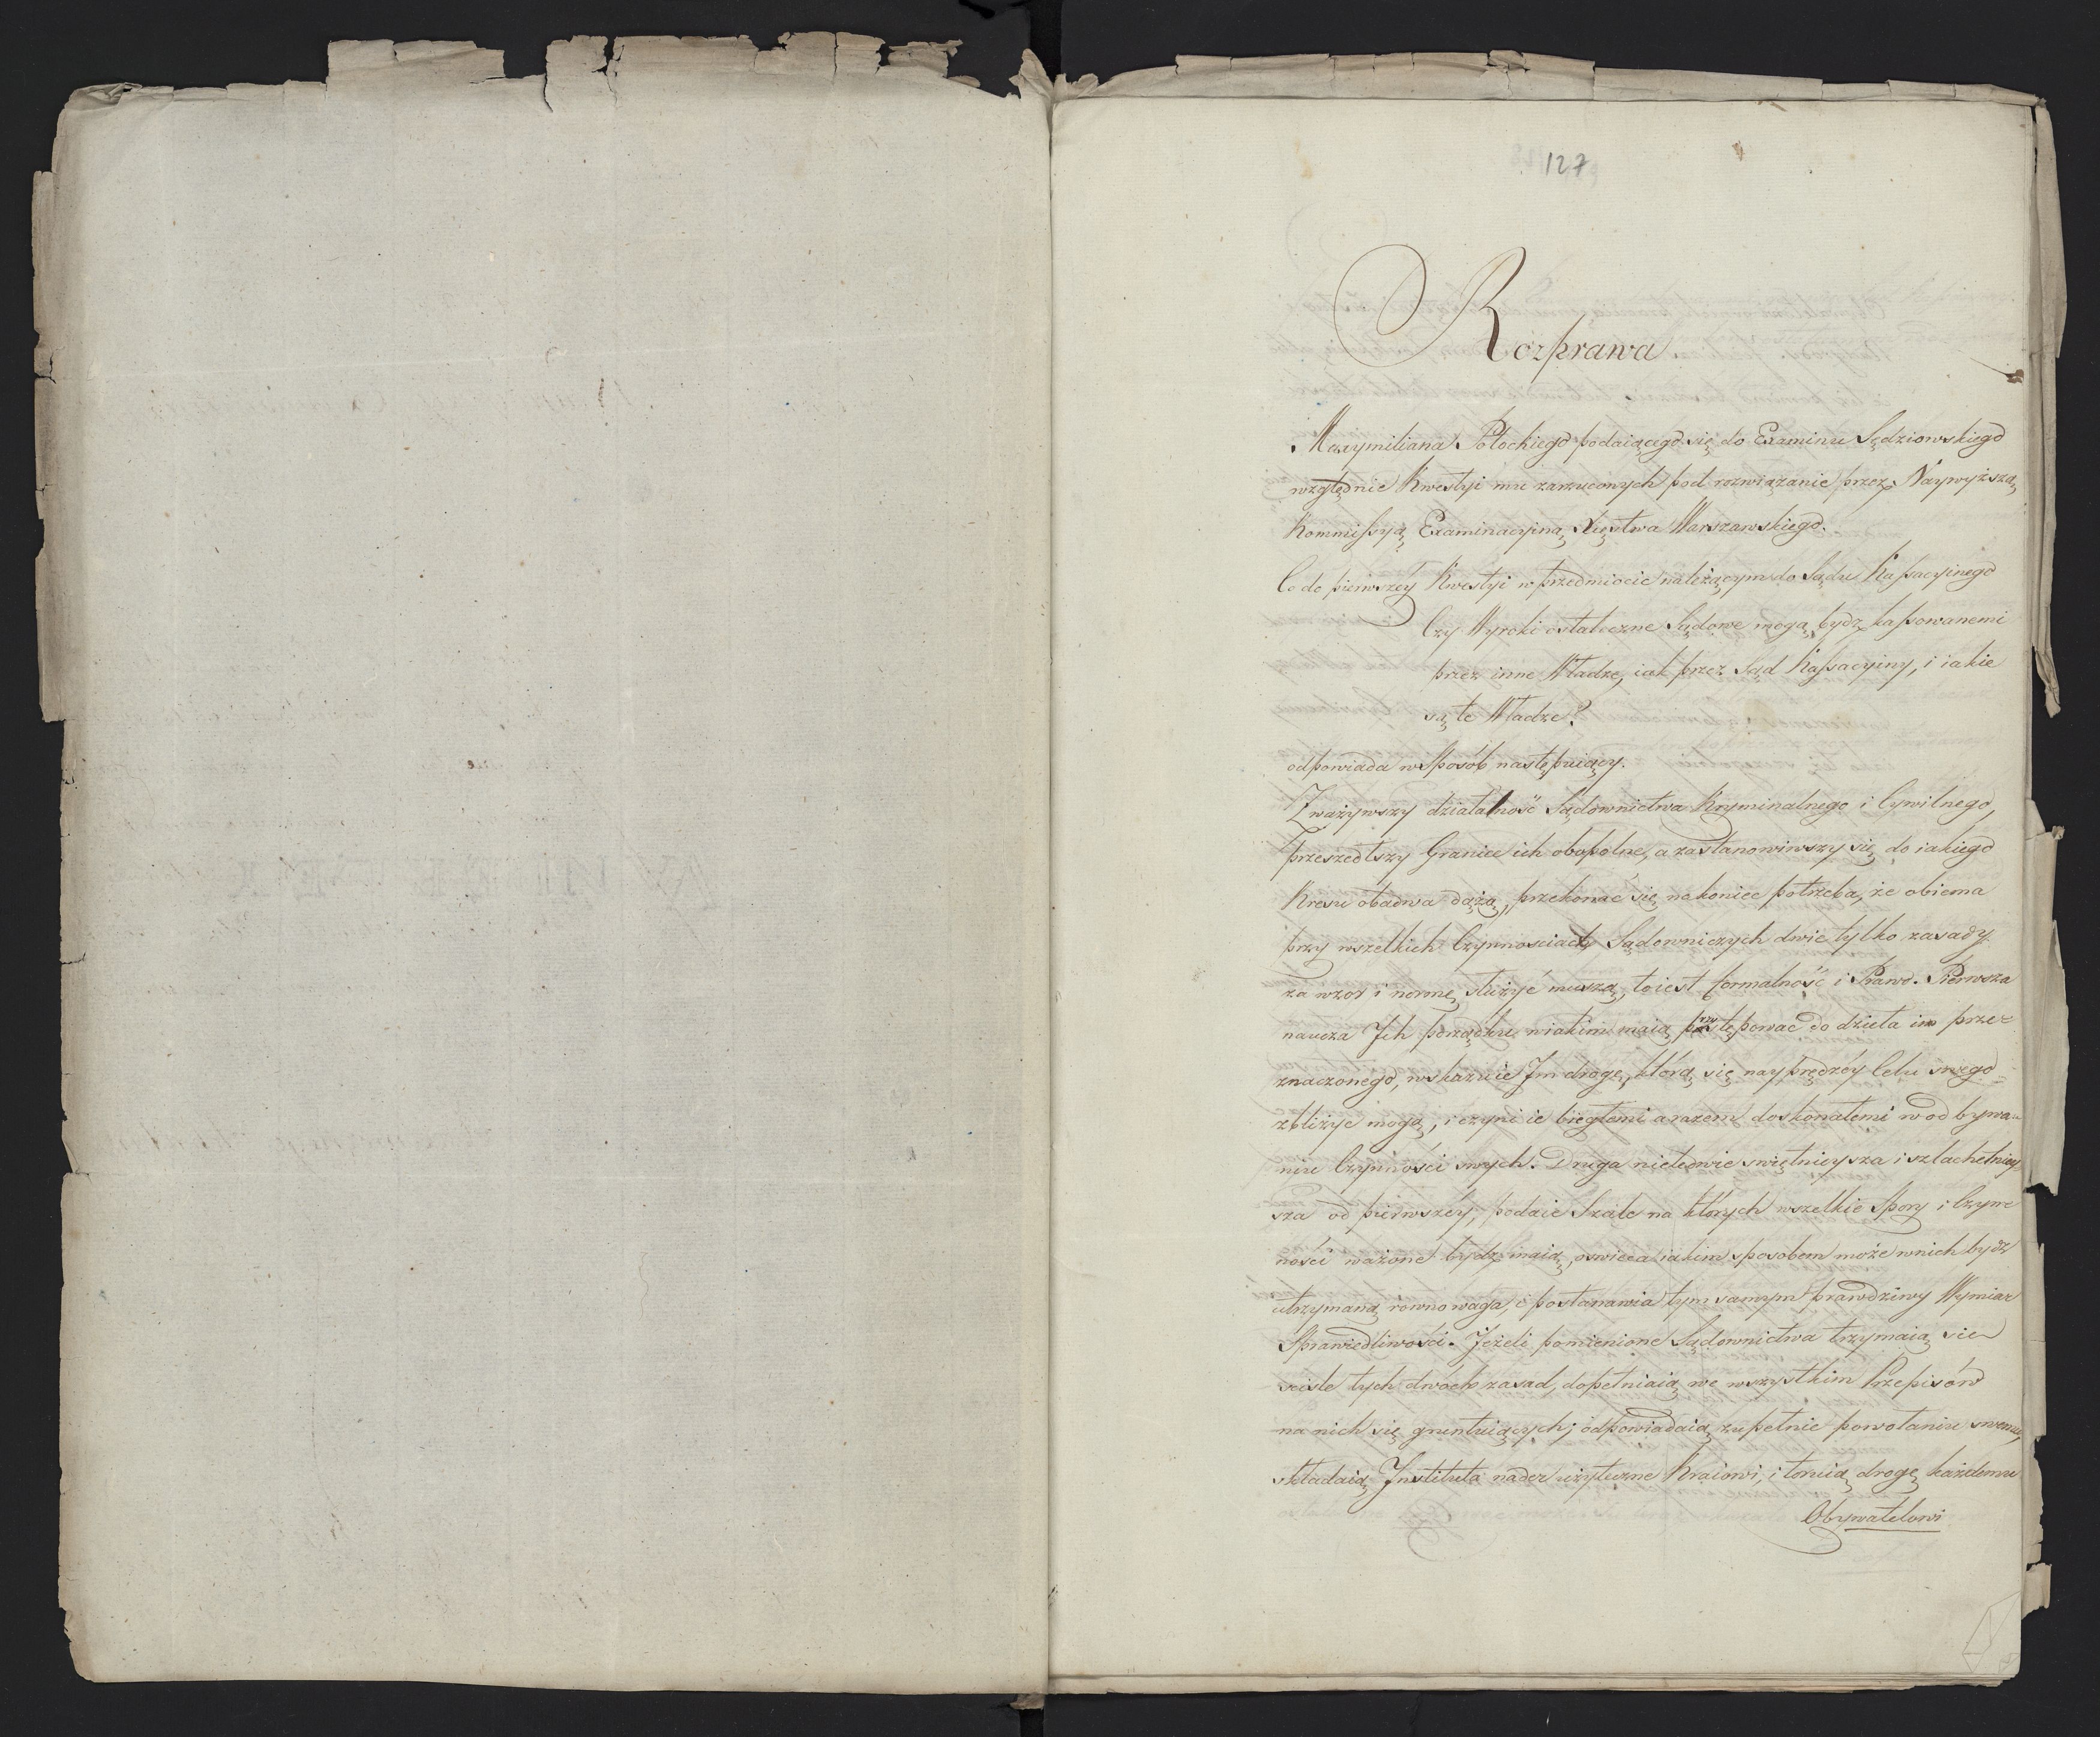 127
Rozprawa
Maxymiliana Potockiego podaiącego się do Examinu Sędziowskiego
względnie Kwestyi mu zarzuconych pod rozwiązanie przez Naywyższą
Kommissyą Examinacyiną Xięstwa Warszawskiego.
Co do pierwszéy Kwestyi w przedmiocie należącym do Sądu Kassacyinego
Czy Wyroki ostateczne Sądowe mogą bydz kassowanemi
przez inne Władze, iak przez Sąd Kassacyiny, i iakie
są te Władze?
odpowiada w Sposób następuiący.
Zważywszy działalność Sądownictwa Kryminalnego i Cywilnego,
przeszedłszy Granice ich obopólne, a zastanowiwszy się do iakiego
Kresu obadwa dążą, przekonać się nakoniec potrzeba, że obiema
przy wszelkich Czynnościach Sądowniczych dwie tylko zasady
za wzor i normę służyć muszą, toiest formalność i Prawo. Pierwsza
naucza Ich porządku w iakim maią postępować do dzieła im prze=
znaczonego, wskazuie Im drogę, którą się nayprędzéy Celu swego
zbliżyć mogą, i czyni ie biegłemi a razem doskonałemi w odbywa=
niu Czynności swych. Druga nieledwie swiętnieysza i szlachetniey
sza od pierwszéy, podaie Szale na których wszelkie Spory i Czyn=
ności ważone bydz maią, oswieca iakim sposobem może w nich bydz
utrzymaną równowaga, i postanawia tym samym prawdziwy Wymiar
Sprawiedliwości. Jeżeli pomienione Sądownictwa trzymaią się
scisle tych dwóch zasad, dopełniaią we wszystkim Przepisów
na nich się gruntuiących; odpowiadaią zupełnie powołaniu swemu,
składaią Instituta nader użyteczne Kraiowi, i toruią drogę każdemu
Obywatelowi